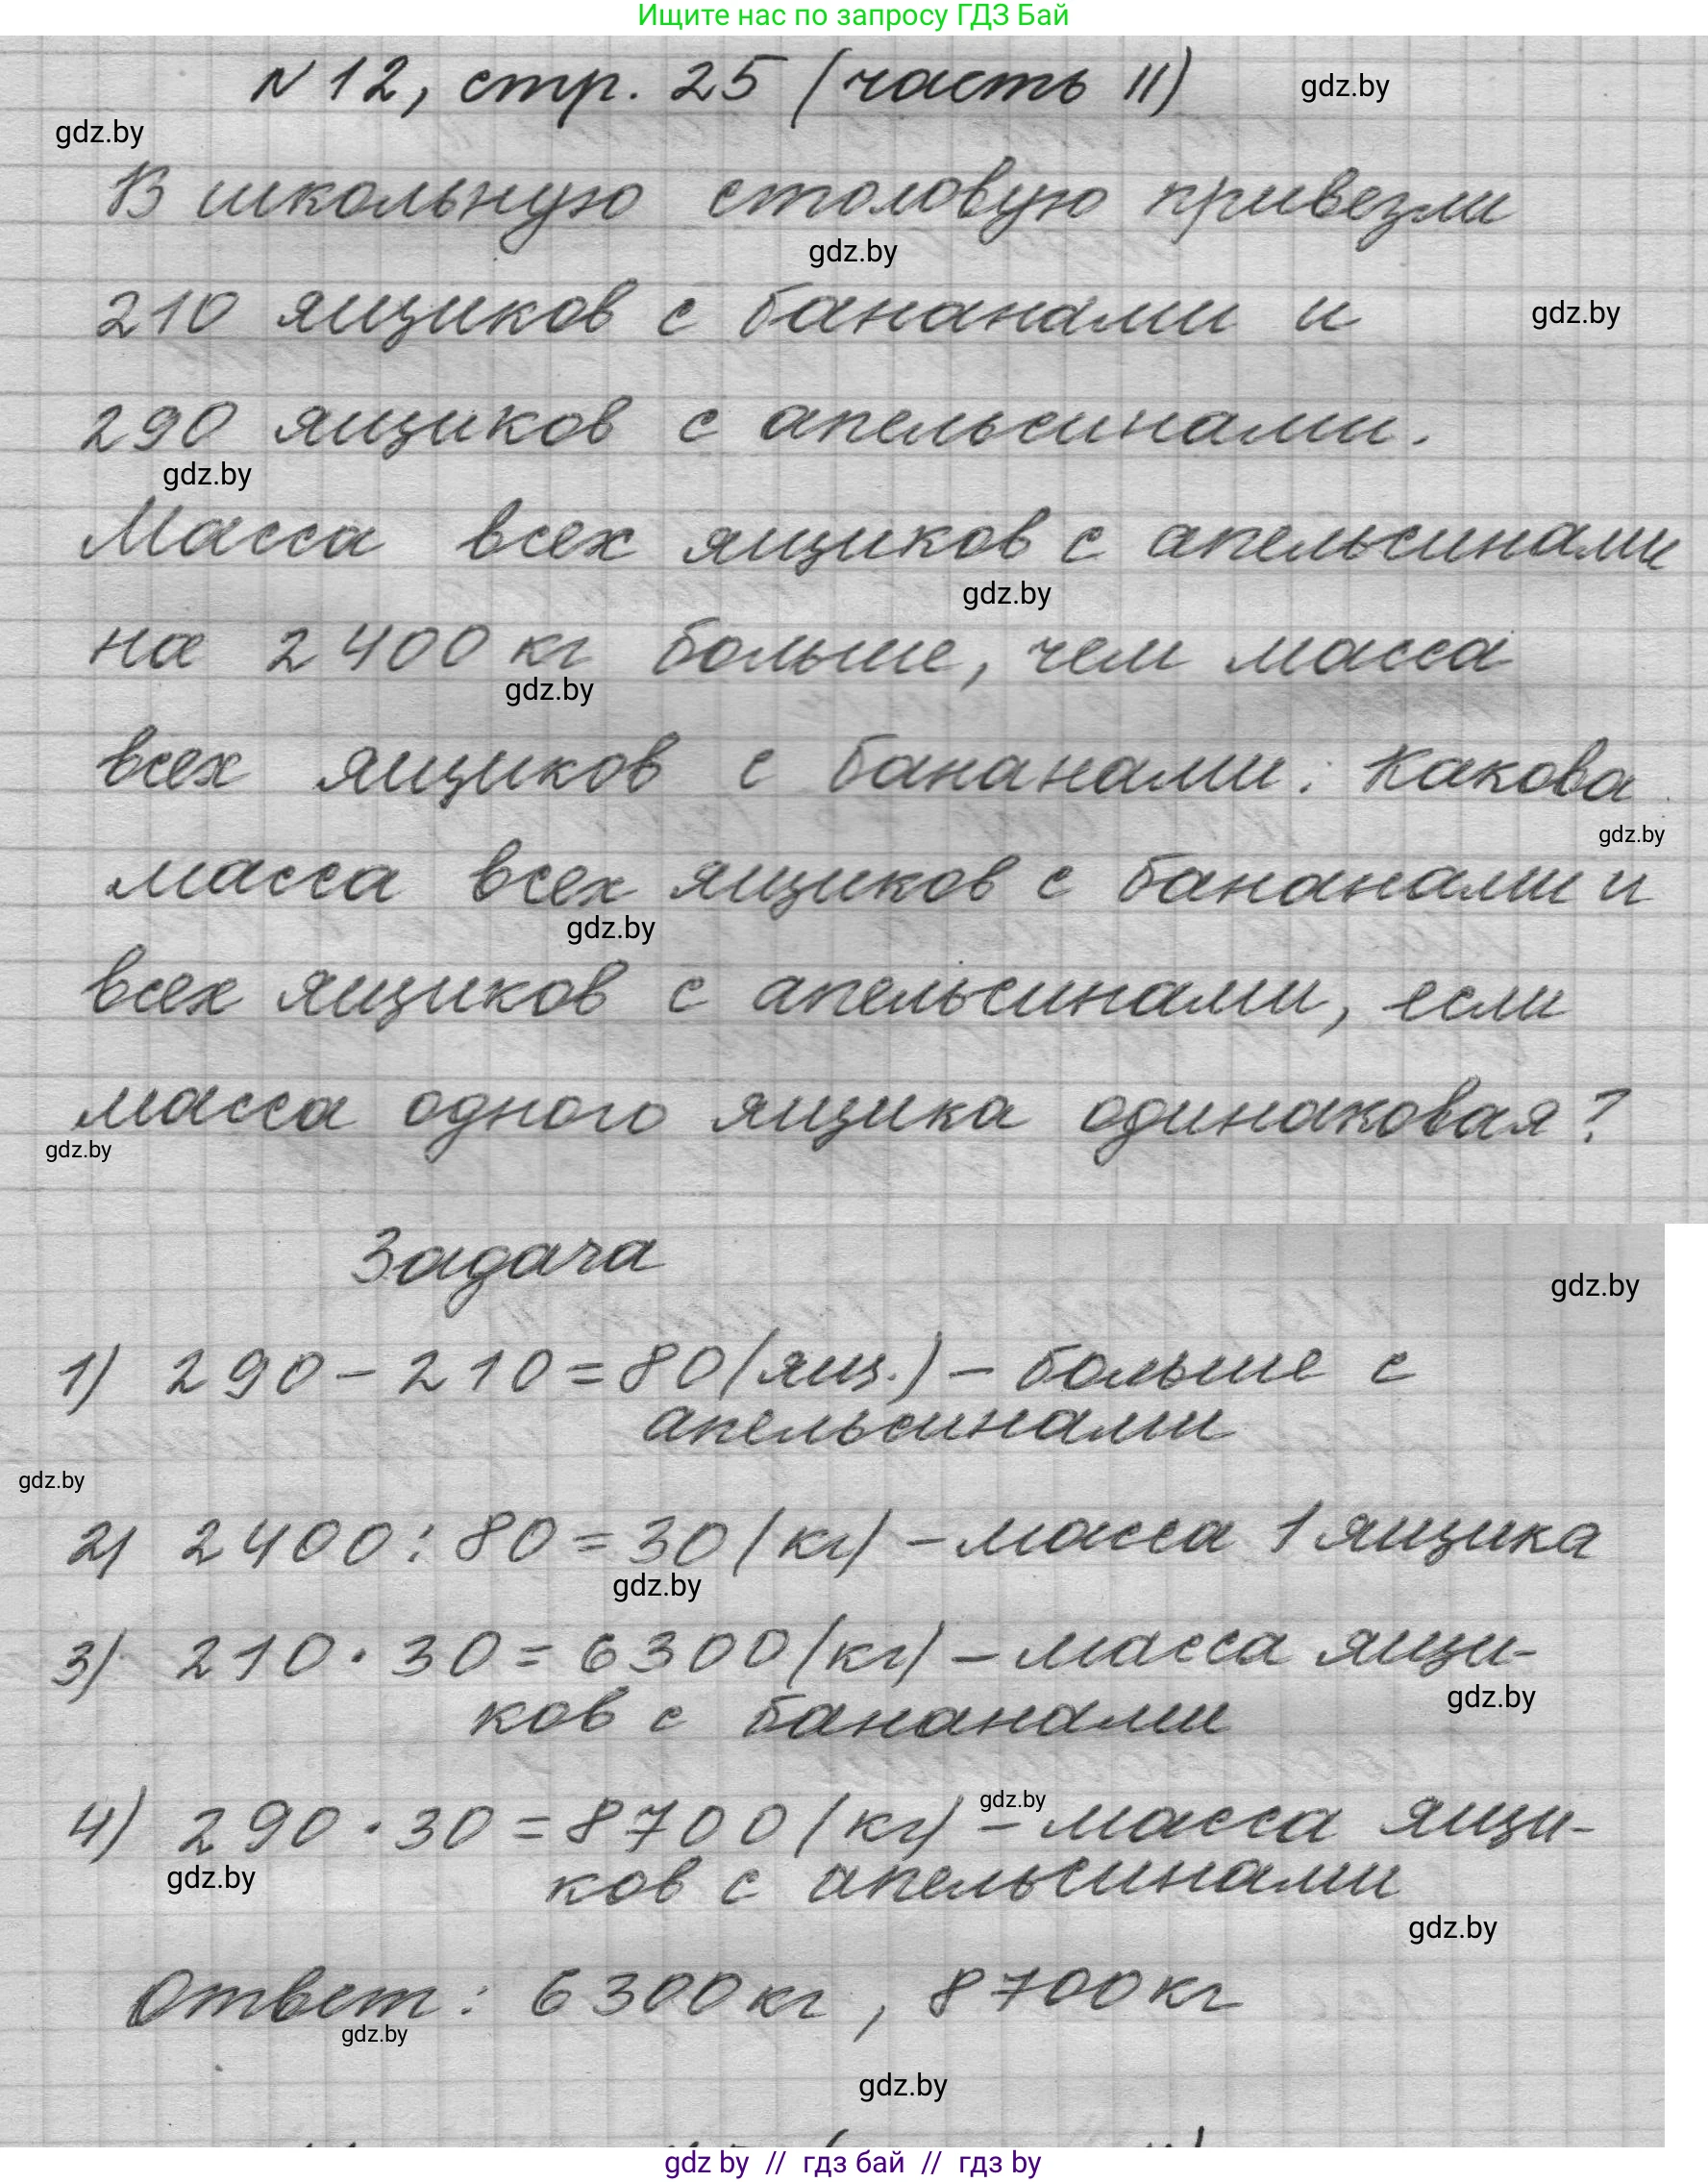 Ищите нас по запросу ГДЗ Бай
N 12, стр. 25 (часть II)
gdz.by
gdz.by
В школьную столовую привезли
gdz.by
210 ящиков с бананами и
gdz.by
290 ящиков с апельсинами.
gdz.by
Масса всех ящиков с апельсинами
gdz.by
на 2400 кг больше, чем масса
gdz.by
всех ящиков с бананами. Какова
gdz.by
масса всех ящиков с бананами и
gdz.by
всех ящиков с апельсинами, если
масса одного ящика одинаковая?
gdz.by
Задача
gdz.by
1) 290 - 210 = 80 (ящ.) - больше с
апельсинами
gdz.by
2) 2400 : 80 = 30 (кг) - масса 1 ящика
gdz.by
3) 210 · 30 = 6300 (кг) - масса ящи-
gdz.by
ков с бананами
gdz.by
4) 290 · 30 = 8700 (кг) - масса ящи-
gdz.by
ков с апельсинами
gdz.by
Ответ: 6300 кг, 8700 кг
gdz.by
gdz.by
gdz by // гдз бай // gdz by